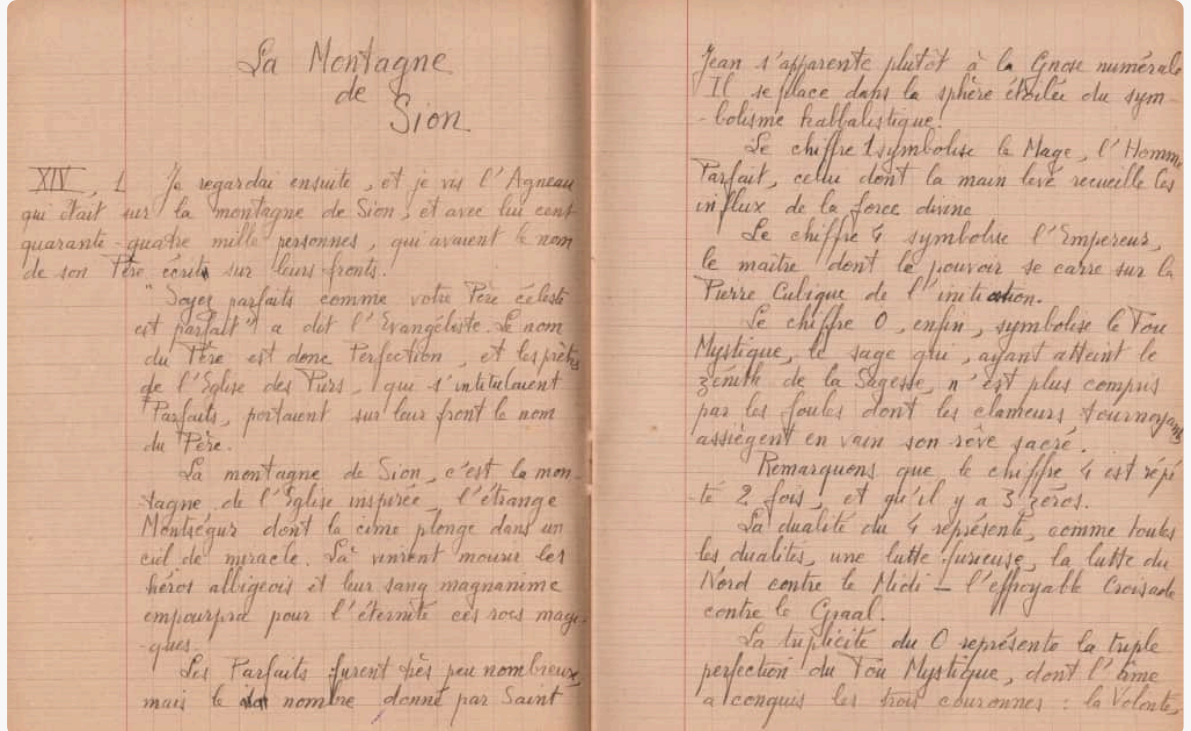 La Montagne
de
Sion
XIV, 1 Je regardai ensuite, et je vis l'Agneau
qui était sur la montagne de Sion, et avec lui cent
quarante-quatre mille personnes, qui avaient le nom
de son Père écrit sur leurs fronts.
"Soyez parfaits comme votre Père céleste
est parfait" a dit l'Evangéliste. Le nom
du Père est donc Perfection, et les prêtres
de l'Eglise des Purs, qui s'intitulaient
Parfaits, portaient sur leur front le nom
du Père.
La montagne de Sion, c'est la mon-
tagne de l'Eglise inspirée, l'étrange
Montségur dont la cime plonge dans un
ciel de miracle. Là vinrent mourir les
héros albigeois et leur sang magnanime
empourpra pour l'éternité ces rocs magi-
-ques.
Les Parfaits furent très peu nombreux,
mais le nombre donné par Saint
Jean s'apparente plutôt à la Gnose numérale
Il se place dans la sphère étoilée du sym-
-bolisme kabbalistique.
Le chiffre 1 symbolise le Mage, l'Homme
Parfait, celui dont la main levé recueille les
influx de la force divine
Le chiffre 4 symbolise l'Empereur,
le maître dont le pouvoir se carre sur la
Pierre Cubique de l'initiation.
Le chiffre 0, enfin, symbolise le Fou
Mystique, le sage qui, ayant atteint le
zénith de la Sagesse, n'est plus compris
par les foules dont les clameurs tournoyants
assiègent en vain son rêve sacré.
Remarquons que le chiffre 4 est répé
-té 2 fois, et qu'il y a 3 zéros.
La dualité du 4 représente, comme toutes
les dualités, une lutte furieuse, la lutte du
Nord contre le Midi – l'effroyable Croisade
contre le Graal.
La triplicité du 0 représente la triple
perfection du Fou Mystique, dont l'âme
a conquis les trois couronnes : la Volonté,